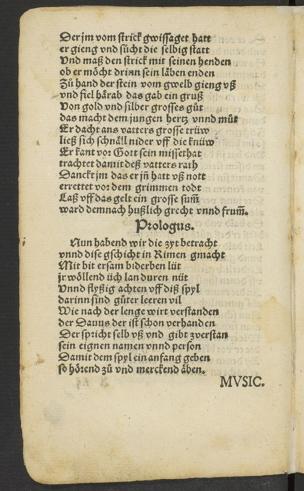 Der jm vom strick gwissaget hatt
er gieng vnd sücht die selbig statt
Vnd maß den strick mit seinen henden
ob er möcht drinn sein läben enden
Zů hand der stein vom gwelb gieng vß
vnd fiel härab das gab ein gruß
Von gold vnd silber grosses gůt
das macht dem jungen hertz vnnd můt
Er dacht ans vatters grosse trüw
ließ sich schnäll nider vff die knüw
Er kant vor Gott sein missethat
trachtet damit deß vatters rath
Danckt jm das er jn hatt vß nott
errettet vor dem grimmen todt
Laß vff das gelt ein grosse sum̄
ward demnach hußlich grecht vnnd frum̄.
Prologus.
Nun habend wir die zyt betracht
vnnd dise gschicht in Rimen gmacht
Mit bit ersam biderben lüt
jr wöllend üch lan duren nüt
Vnnd flyßig achten vff diß spyl
darinn sind gůter leeren vil
Wie nach der lenge wirt verstanden
der Dauus der ist schon verhanden
Der spricht selb vß vnd gibt zverstan
sein eignen namen vnnd person
Damit dem spyl ein anfang geben
so hörend zů vnd merckend äben.
MVSIC.